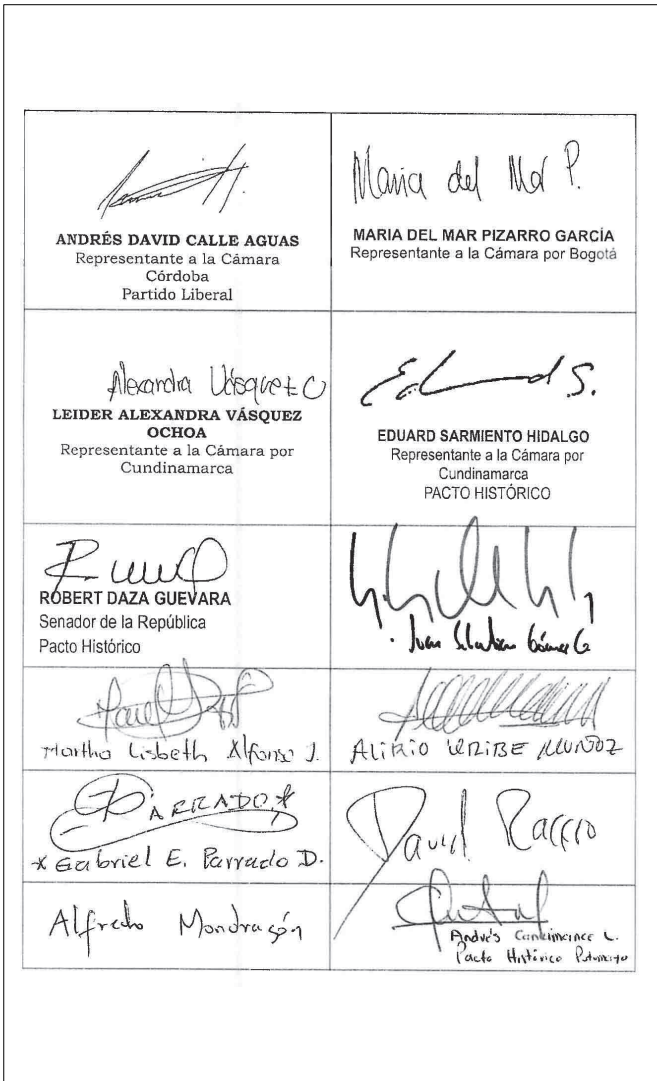 Maria del Mar P.
ANDRÉS DAVID CALLE AGUAS
Representante a la Cámara
Córdoba
Partido Liberal
MARIA DEL MAR PIZARRO GARCÍA
Representante a la Cámara por Bogotá
Alexandra Vásquez O
LEIDER ALEXANDRA VÁSQUEZ
OCHOA
Representante a la Cámara por
Cundinamarca
Eduard S.
EDUARD SARMIENTO HIDALGO
Representante a la Cámara por
Cundinamarca
PACTO HISTÓRICO
ROBERT DAZA GUEVARA
Senador de la República
Pacto Histórico
Juan Sebastian Gómez G
Martha Lisbeth Alfonso J.
ALIRIO URIBE MUÑOZ
PARRADO*
* Gabriel E. Parrado D.
David Racero
Alfredo Mondragón
Andrés Cancimance L.
Pacto Histórico Putumayo